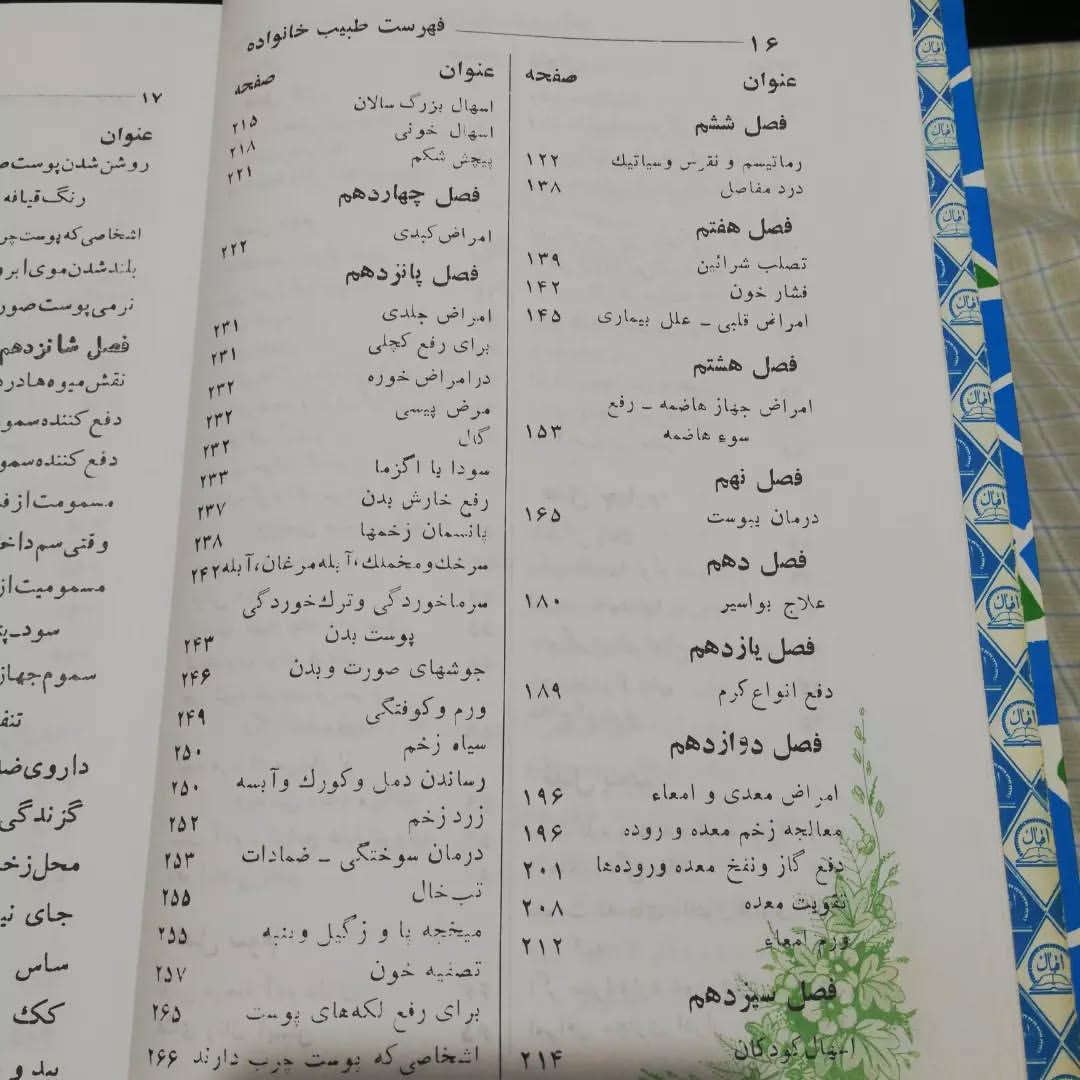 ۱۶ فهرست طبیب خانواده
عنوان صفحه
فصل ششم
رماتیسم و نقرس وسیاتیك ۱۲۲
درد مفاصل ۱۳۸
فصل هفتم
تصلب شرائین ۱۳۹
فشار خون ۱۴۲
امراض قلبی ـ علل بیماری ۱۴۵
فصل هشتم
امراض جهاز هاضمه ـ رفع
سوء هاضمه ۱۵۳
فصل نهم
درمان یبوست ۱۶۵
فصل دهم
علاج بواسیر ۱۸۰
فصل یازدهم
دفع انواع کرم ۱۸۹
فصل دوازدهم
امراض معدی و امعاء ۱۹۶
معالجه زخم معده و روده ۱۹۶
دفع گاز ونفخ معده وروده‌ها ۲۰۱
تقویت معده ۲۰۸
ورم امعاء ۲۱۲
فصل سیزدهم
اسهال کودکان ۲۱۴
عنوان صفحه
اسهال بزرگ سالان ۲۱۵
اسهال خونی ۲۱۸
پیچش شکم ۲۲۱
فصل چهاردهم
امراض کبدی ۲۲۲
فصل پانزدهم
امراض جلدی ۲۳۱
برای رفع کچلی ۲۳۱
درامراض خوره ۲۳۲
مرض پیسی ۲۳۲
گال ۲۳۲
سودا یا اگزما ۲۳۳
رفع خارش بدن ۲۳۷
پانسمان زخمها ۲۳۸
سرخك‌ومخملك،آبله‌مرغان،آبله ۲۴۲
سرماخوردگی وترك‌خوردگی
پوست بدن ۲۴۳
جوشهای صورت وبدن ۲۴۶
ورم وکوفتگی ۲۴۹
سیاه زخم ۲۵۰
رساندن دمل وکورك وآبسه ۲۵۰
زرد زخم ۲۵۲
درمان سوختگی ـ ضمادات ۲۵۳
تب‌خال ۲۵۵
میخچه پا و زگیل وپنبه ۲۵۵
تصفیه خون ۲۵۷
برای رفع لکه‌های پوست ۲۶۵
اشخاصی که پوست چرب دارند ۲۶۶
۱۷
عنوان
روشن شدن پوست
رنگ قیافه
اشخاصی که پوست
بلندشدن‌موی‌ابرو
نرمی پوست
فصل شانزدهم
نقش میوه‌ها
دفع کننده
دفع کننده
مسمومت از
وقتی سم
مسمومیت از
سموم
داروی
گزندگی
محل
جای
ساس
کك